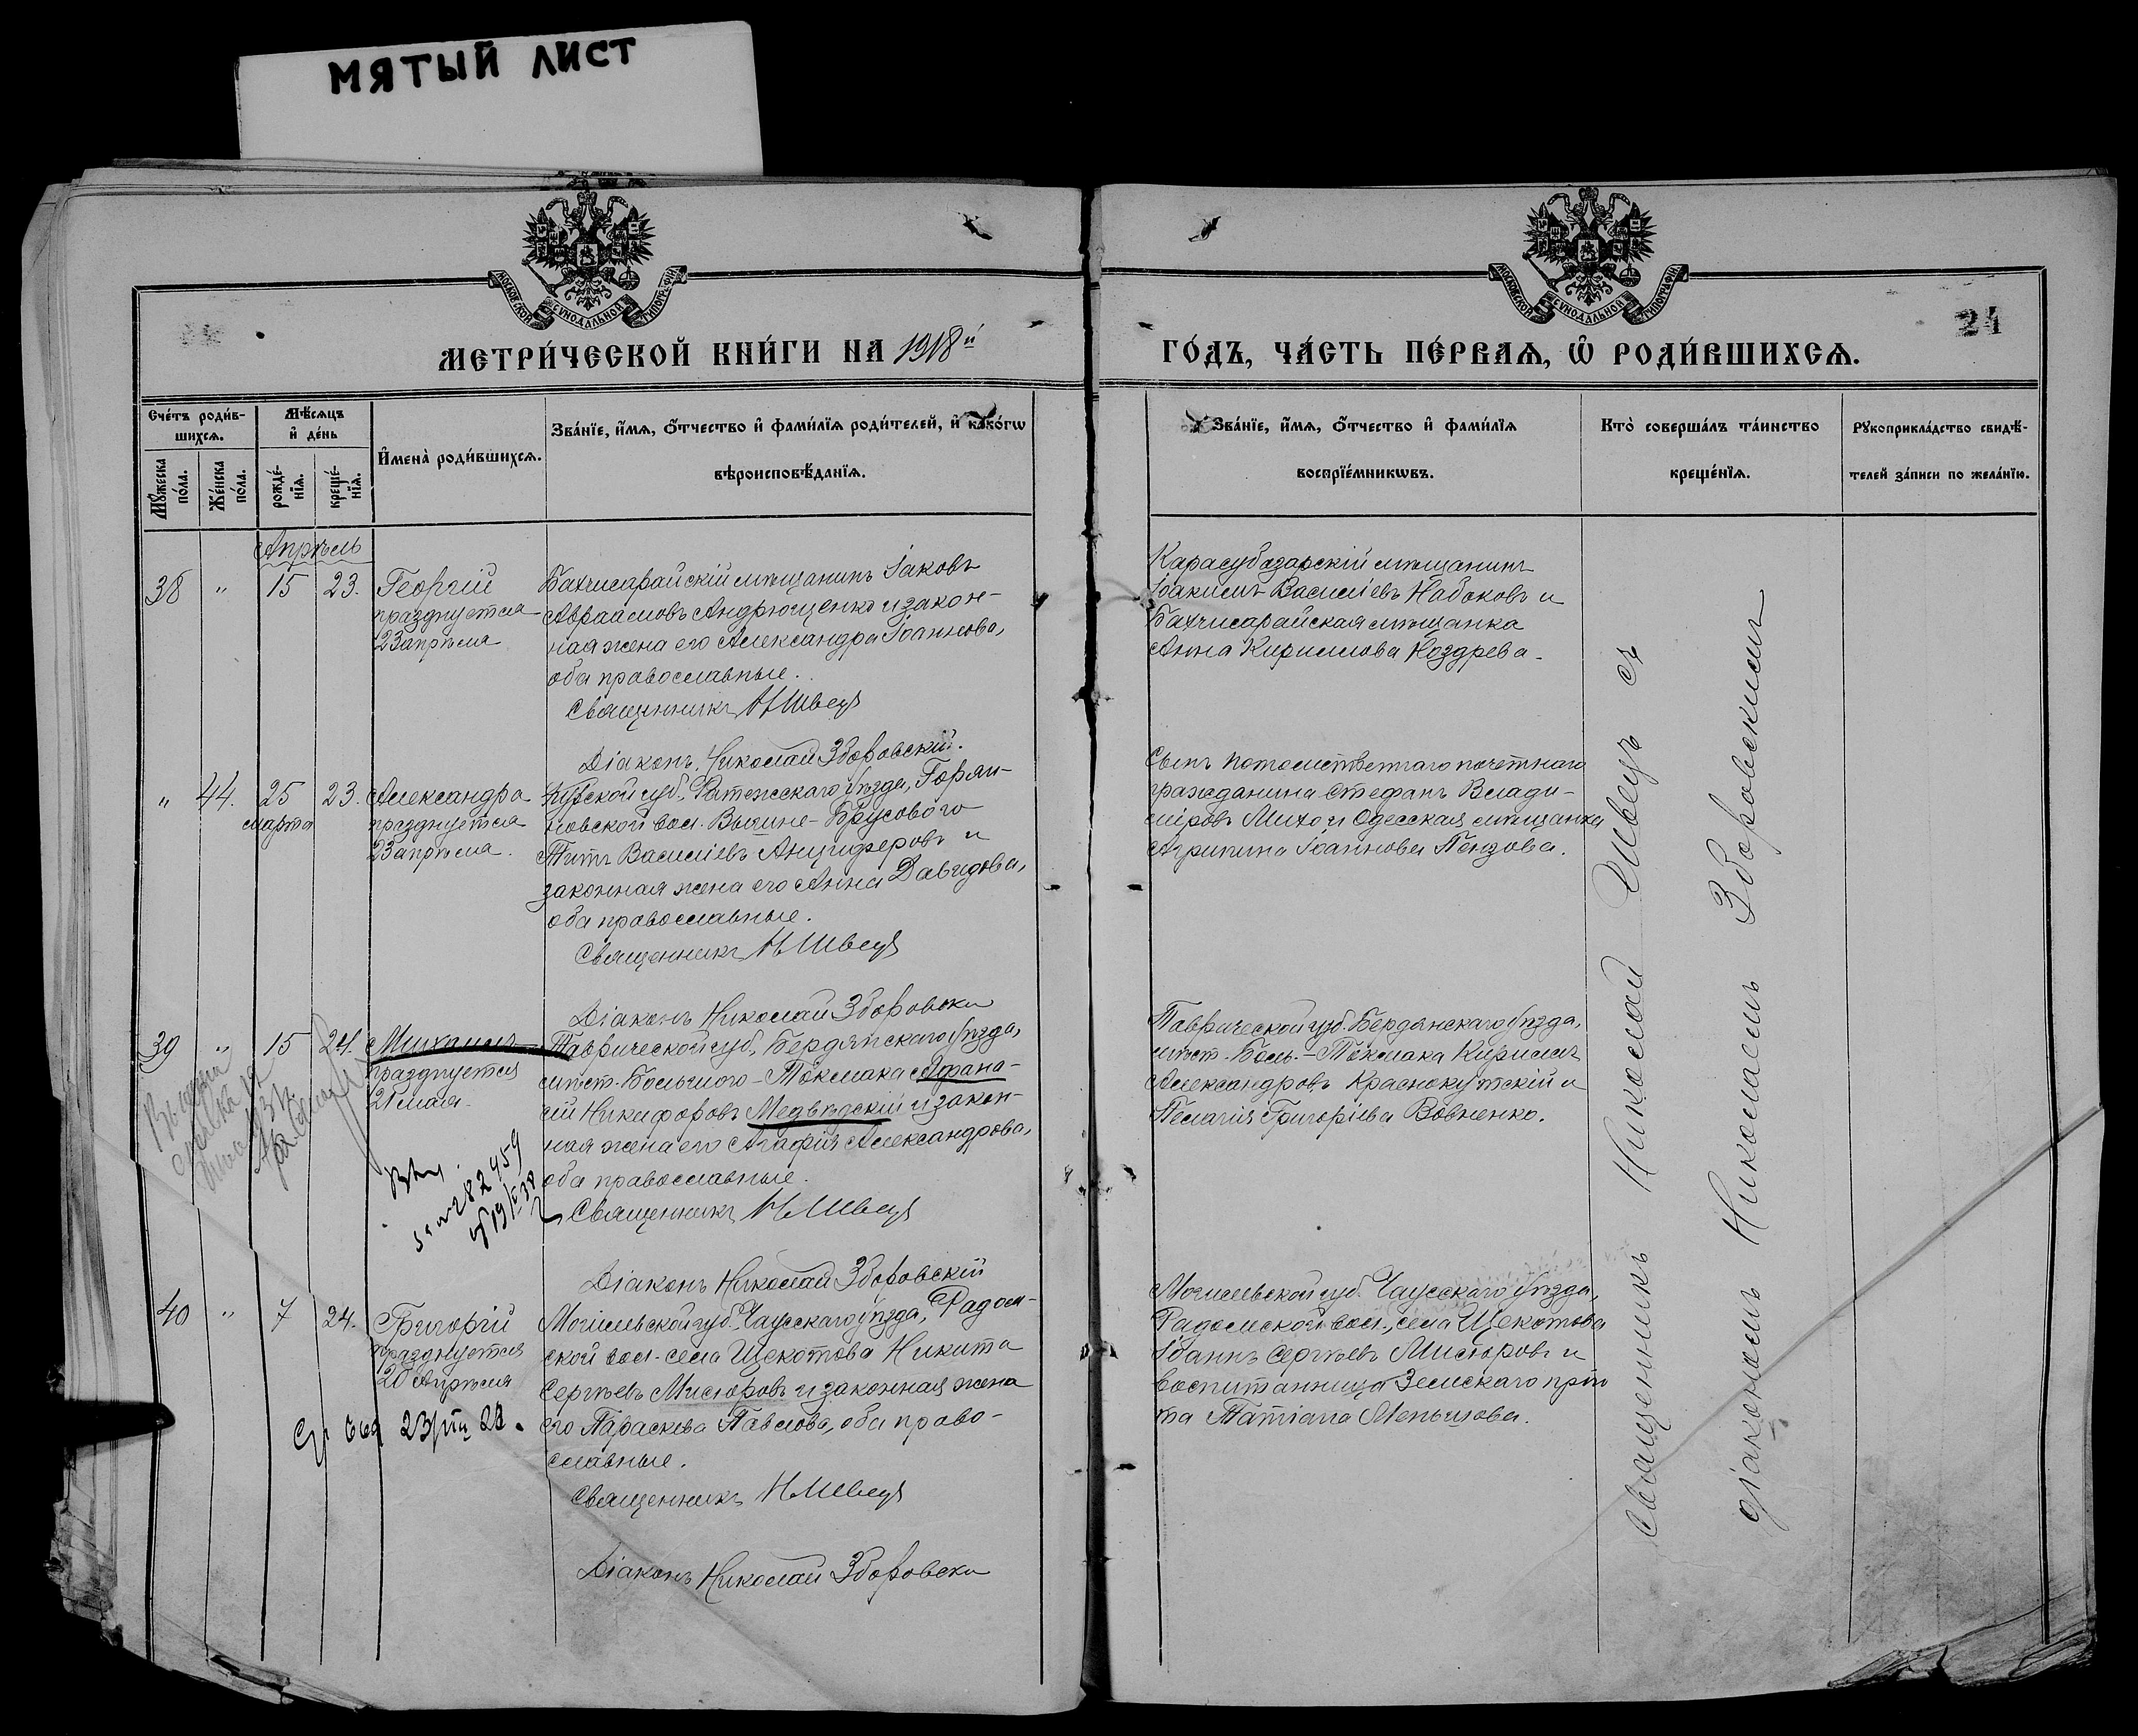 МЯТЫЙ ЛИСТ
МОСКОВСКОЙ СѴНОДАЛЬНОЙ ТИПОГРАФІИ
МОСКОВСКОЙ СѴНОДАЛЬНОЙ ТИПОГРАФІИ
24
МЕТРИ́ЧЕСКОЙ КНИ́ГИ НА 1918й
ГО́ДЪ, ЧА́СТЬ ПЕ́РВАѦ, Ѿ РОДИ́ВШИХСѦ.
Сче́тъ роди́в-
шихсѧ.
Мꙋ́жеска по́ла.
Же́нска по́ла.
Мѣ́сѧцъ
и҆ де́нь
рожде́-
нїѧ.
креще́-
нїѧ.
И҆мена̀ роди́вшихсѧ.
Зва́нїе, и҆́мѧ, ѻ҆́тчество и҆ фами́лїѧ роди́телей, и҆ како́гѡ
вѣроисповѣ́данїѧ.
Зва́нїе, и҆́мѧ, ѻ҆́тчество и҆ фами́лїѧ
воспрїе́мникѡвъ.
Кто̀ соверша́лъ та́инство
креще́нїѧ.
Рꙋкоприкла́дство свидѣ́-
телей за́писи по жела́нїю.
Апрѣль
38 " 15 23. Георгій
празднуется
23 апрѣля
Бахчисарайскій мѣщанинъ Іаковъ
Авраамовъ Андрющенко и закон-
ная жена его Александра Іоаннова,
оба православные.
Священникъ Н Швецъ
Діаконъ Николай Зборовскій.
Карасубазарскій мѣщанинъ
Іоакимъ Василіевъ Набоковъ и
Бахчисарайская мѣщанка
Анна Кириллова Ноздрева.
" 44. 25 23. Александра
марта празднуется
23 апрѣля.
Курской губ., Фатежскаго уѣзда, Горян-
новской вол. Вышне-Брусового
Титъ Василіевъ Анциферовъ и
законная жена его Анна Давидова,
оба православные.
Священникъ Н Швецъ
Діаконъ Николай Зборовскій
Сынъ потомственнаго почетнаго
гражданина Стефанъ Влади-
міровъ Михо и Одесская мѣщанка
Агрипина Іоаннова Пензова.
39 " 15 24. Михаилъ
празднуется
21 мая.
Таврической губ., Бердянскаго уѣзда,
мѣст. Большого-Токмака Афана-
сій Никифоровъ Медвѣдскій и закон-
ная жена его Агафія Александрова,
оба православные.
Священникъ Н Швецъ
Діаконъ Николай Зборовскій
Таврической губ. Бердянскаго уѣзда,
мѣст. Боль.-Токмака Кириллъ
Александровъ Краснокутскій и
Пелагія Григоріева Вовненко.
40 " 7 24. Григорій
празднуется
20 апрѣля
Могилевской губ. Чаусскаго уѣзда, Радом-
ской вол. села Щекотова Никита
Сергѣевъ Мисюровъ и законная жена
его Параскева Павлова, оба право-
славные.
Священникъ Н Швецъ
Діаконъ Николай Зборовскій
Могилевской губ. Чаусскаго уѣзда,
Радомской вол., села Щекотова
Іоаннъ Сергѣевъ Мисюровъ и
воспитанница Земскаго прію
та Татіана Меньшова.
Священникъ Николай Швецъ съ
діакономъ Николаемъ Зборовскимъ